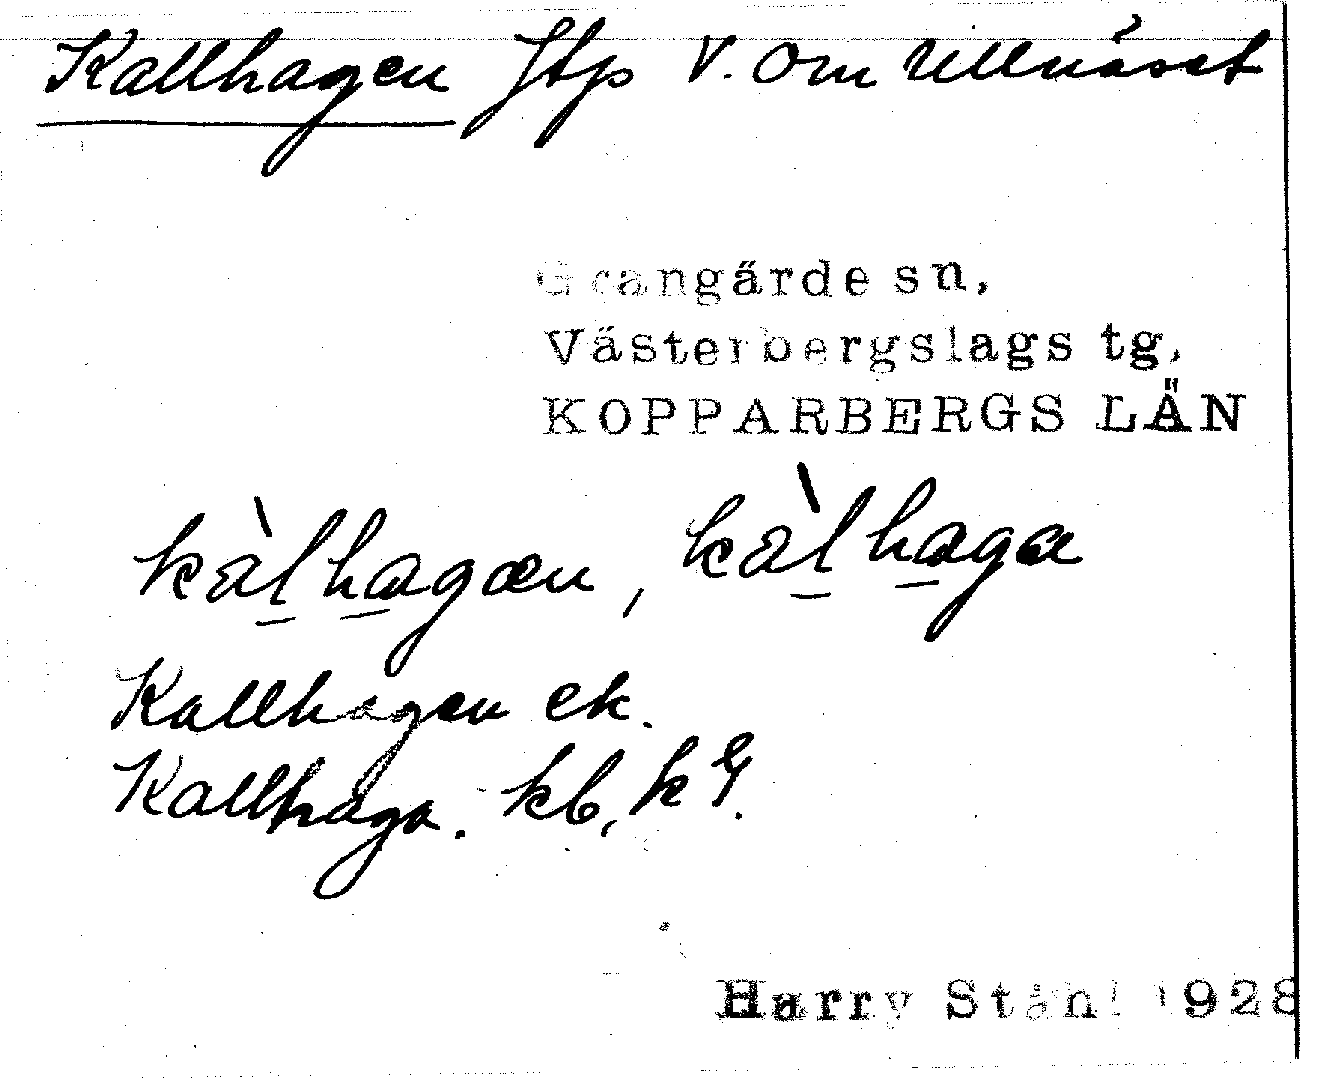 Kallhagen ftp V. om Ullnäset
Grangärde sn,
Västerbergslags tg,
KOPPARBERGS LÄN
kàlhagæn, kàlhaga
Kallhagen ek.
Kallhaga. kb, kG.
Harry Ståhl 1928